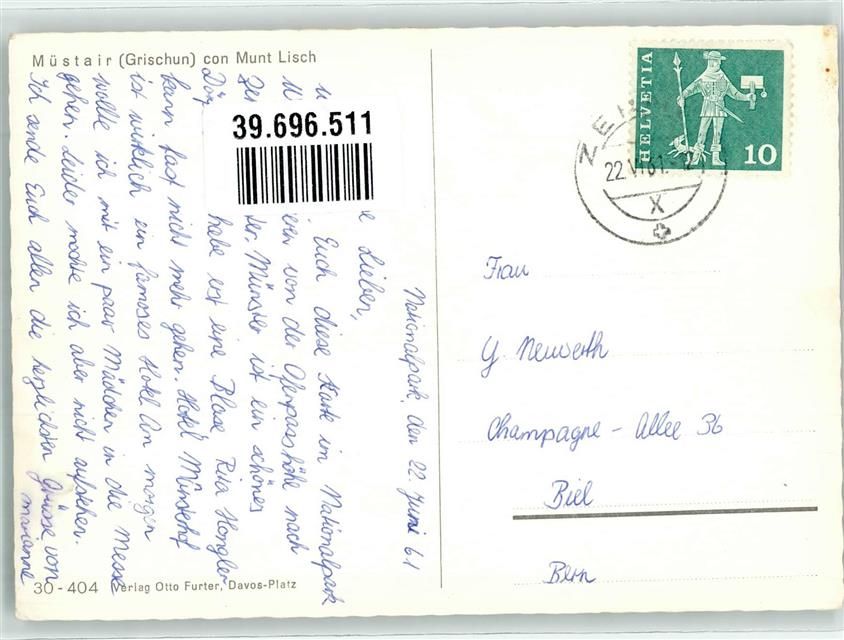 Müstair (Grischun) con Munt Lisch
39.696.511
HELVETIA
10
ZE
22.VI.61.-12
X
Nationalpark, den 22. Juni 61
Lieben,
Euch diese Karte im Nationalpark
von der Ofenpasshöhe nach
Münster ist ein schönes
habe erst eine Blase Rita Hongler
kann fast nicht mehr gehen. Hotel Münsterhof
ist wirklich ein famoses Hotel Am morgen
wollte ich mit ein paar Mädchen in die Messe
gehen. Leider mochte ich aber nicht aufstehen.
Ich sende Euch allen die herzlichsten Grüsse von
Marianne
Frau
Y. Neuwerth
Champagne - Allee 36
Biel
Bern
30-404 Verlag Otto Furter, Davos-Platz